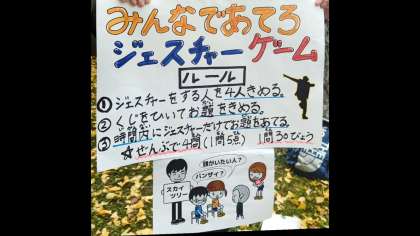 みんなであてろ
ジェスチャーゲーム
ルール
① ジェスチャーをする人を4人きめる。
② くじをひいてお題をきめる。
③ 時間内にジェスチャーだけでお題をあてる。
☆ぜんぶで4問(1問5点) 1問30びょう
頭がいたい人?
バンザイ?
スカイ
ツリー